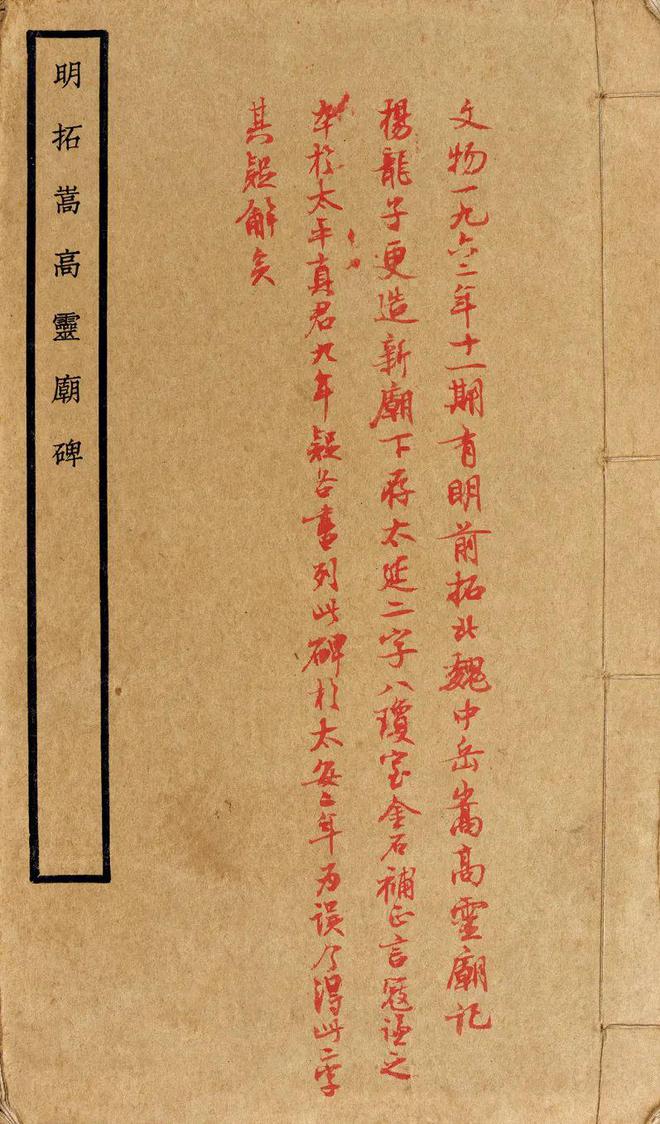 文物一九六二年十一期有明前拓北魏中岳嵩高靈廟記
楊龍子更造新廟下存太延二字八瓊室金石補正言寇謙之
卒於太平真君九年疑各書列此碑於太安二年为误今得此二字
其疑解矣
明拓嵩高靈廟碑